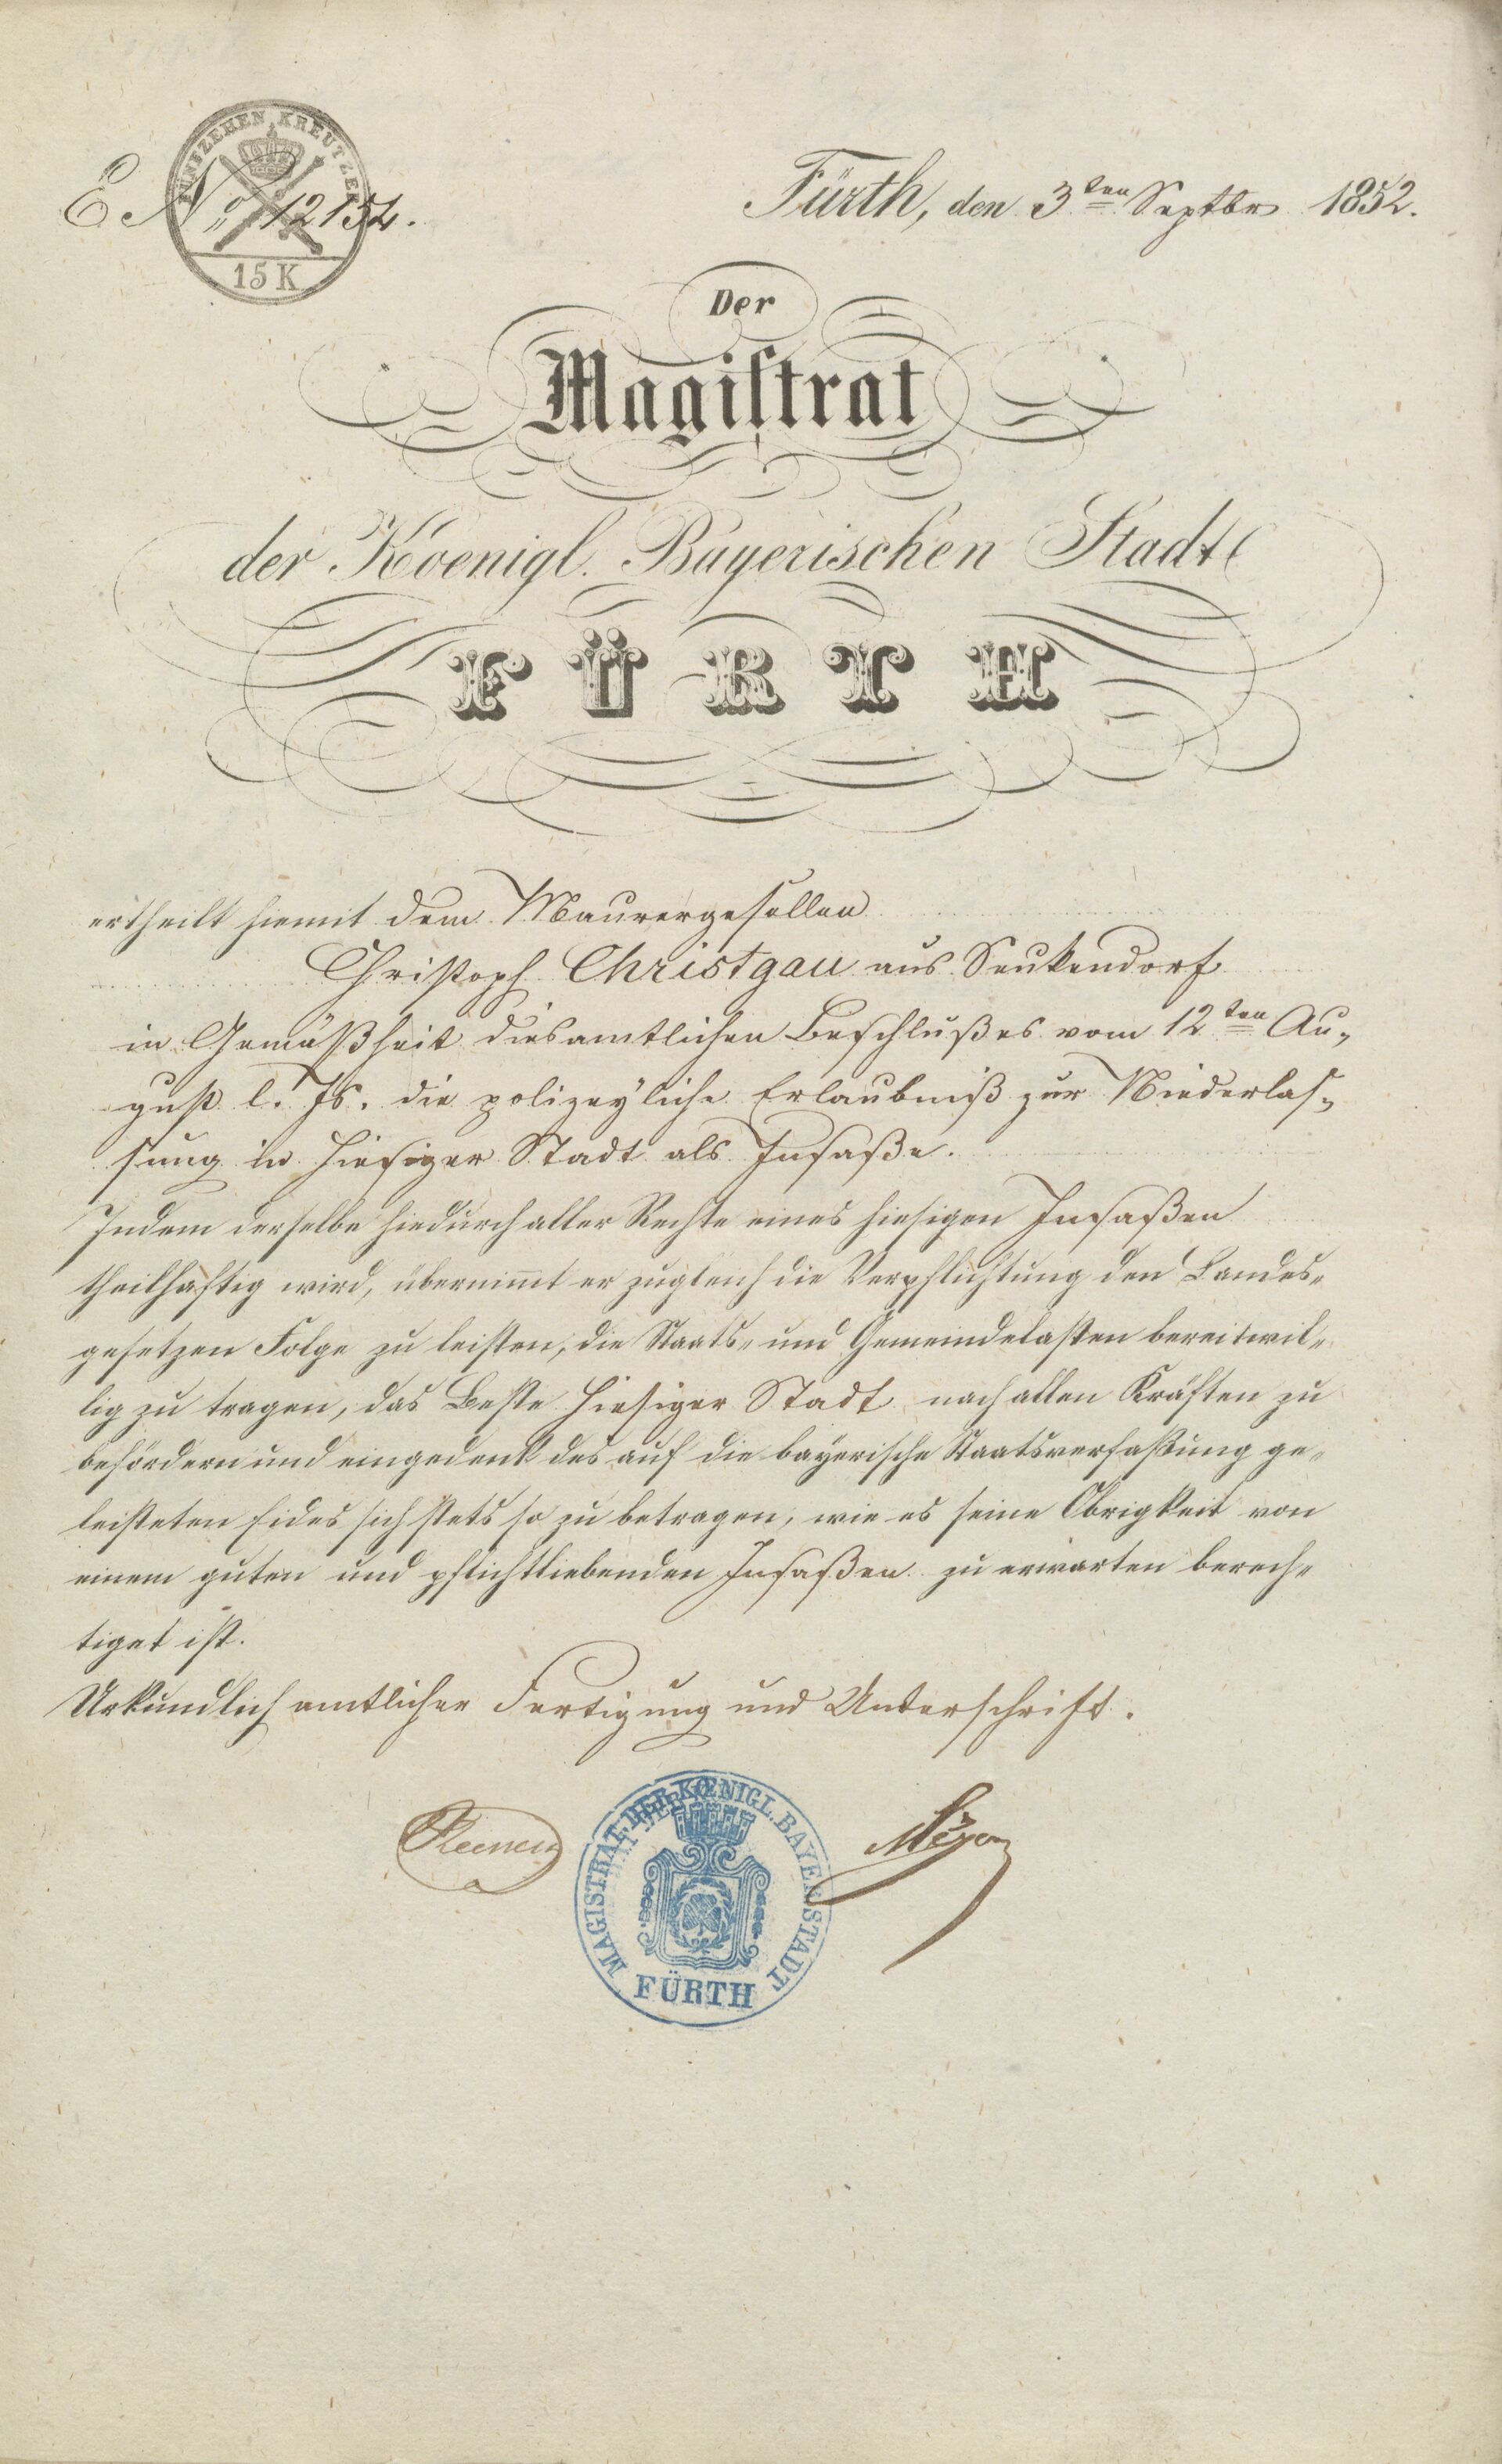 FÜNFZEHEN KREUTZER
15 K
E. No. 12154.
Fürth, den 3ten Septbr 1852.
Der
Magiſtrat
der Koenigl. Bayerischen Stadt
FÜRTH
ertheilt hiemit dem Maurergesellen
Christoph Christgau aus Seukendorf
in Gemäßheit diesamtlichen Beschlußes vom 12ten Au-
gust l. Js. die polizeyliche Erlaubniß zur Niederlas-
sung in hiesiger Stadt als Insaße.
Indem derselbe hiedurch aller Rechte eines hiesigen Insaßen
theilhaftig wird, übernim̅t er zugleich die Verpflichtung den Landes-
gesetzen Folge zu leisten, die Staats- und Gemeindelasten bereitwil-
lig zu tragen, das Beste hiesiger Stadt nach allen Kräften zu
befördern und eingedenk des auf die bayerische Staatsverfaßung ge-
leisteten Eides sich stets so zu betragen, wie es seine Obrigkeit von
einem guten und pflichtliebenden Insaßen zu erwarten berech-
tiget ist.
Urkundlich amtlicher Fertigung und Unterschrift.
MAGISTRAT DER KŒNIGL. BAYER. STADT
FÜRTH